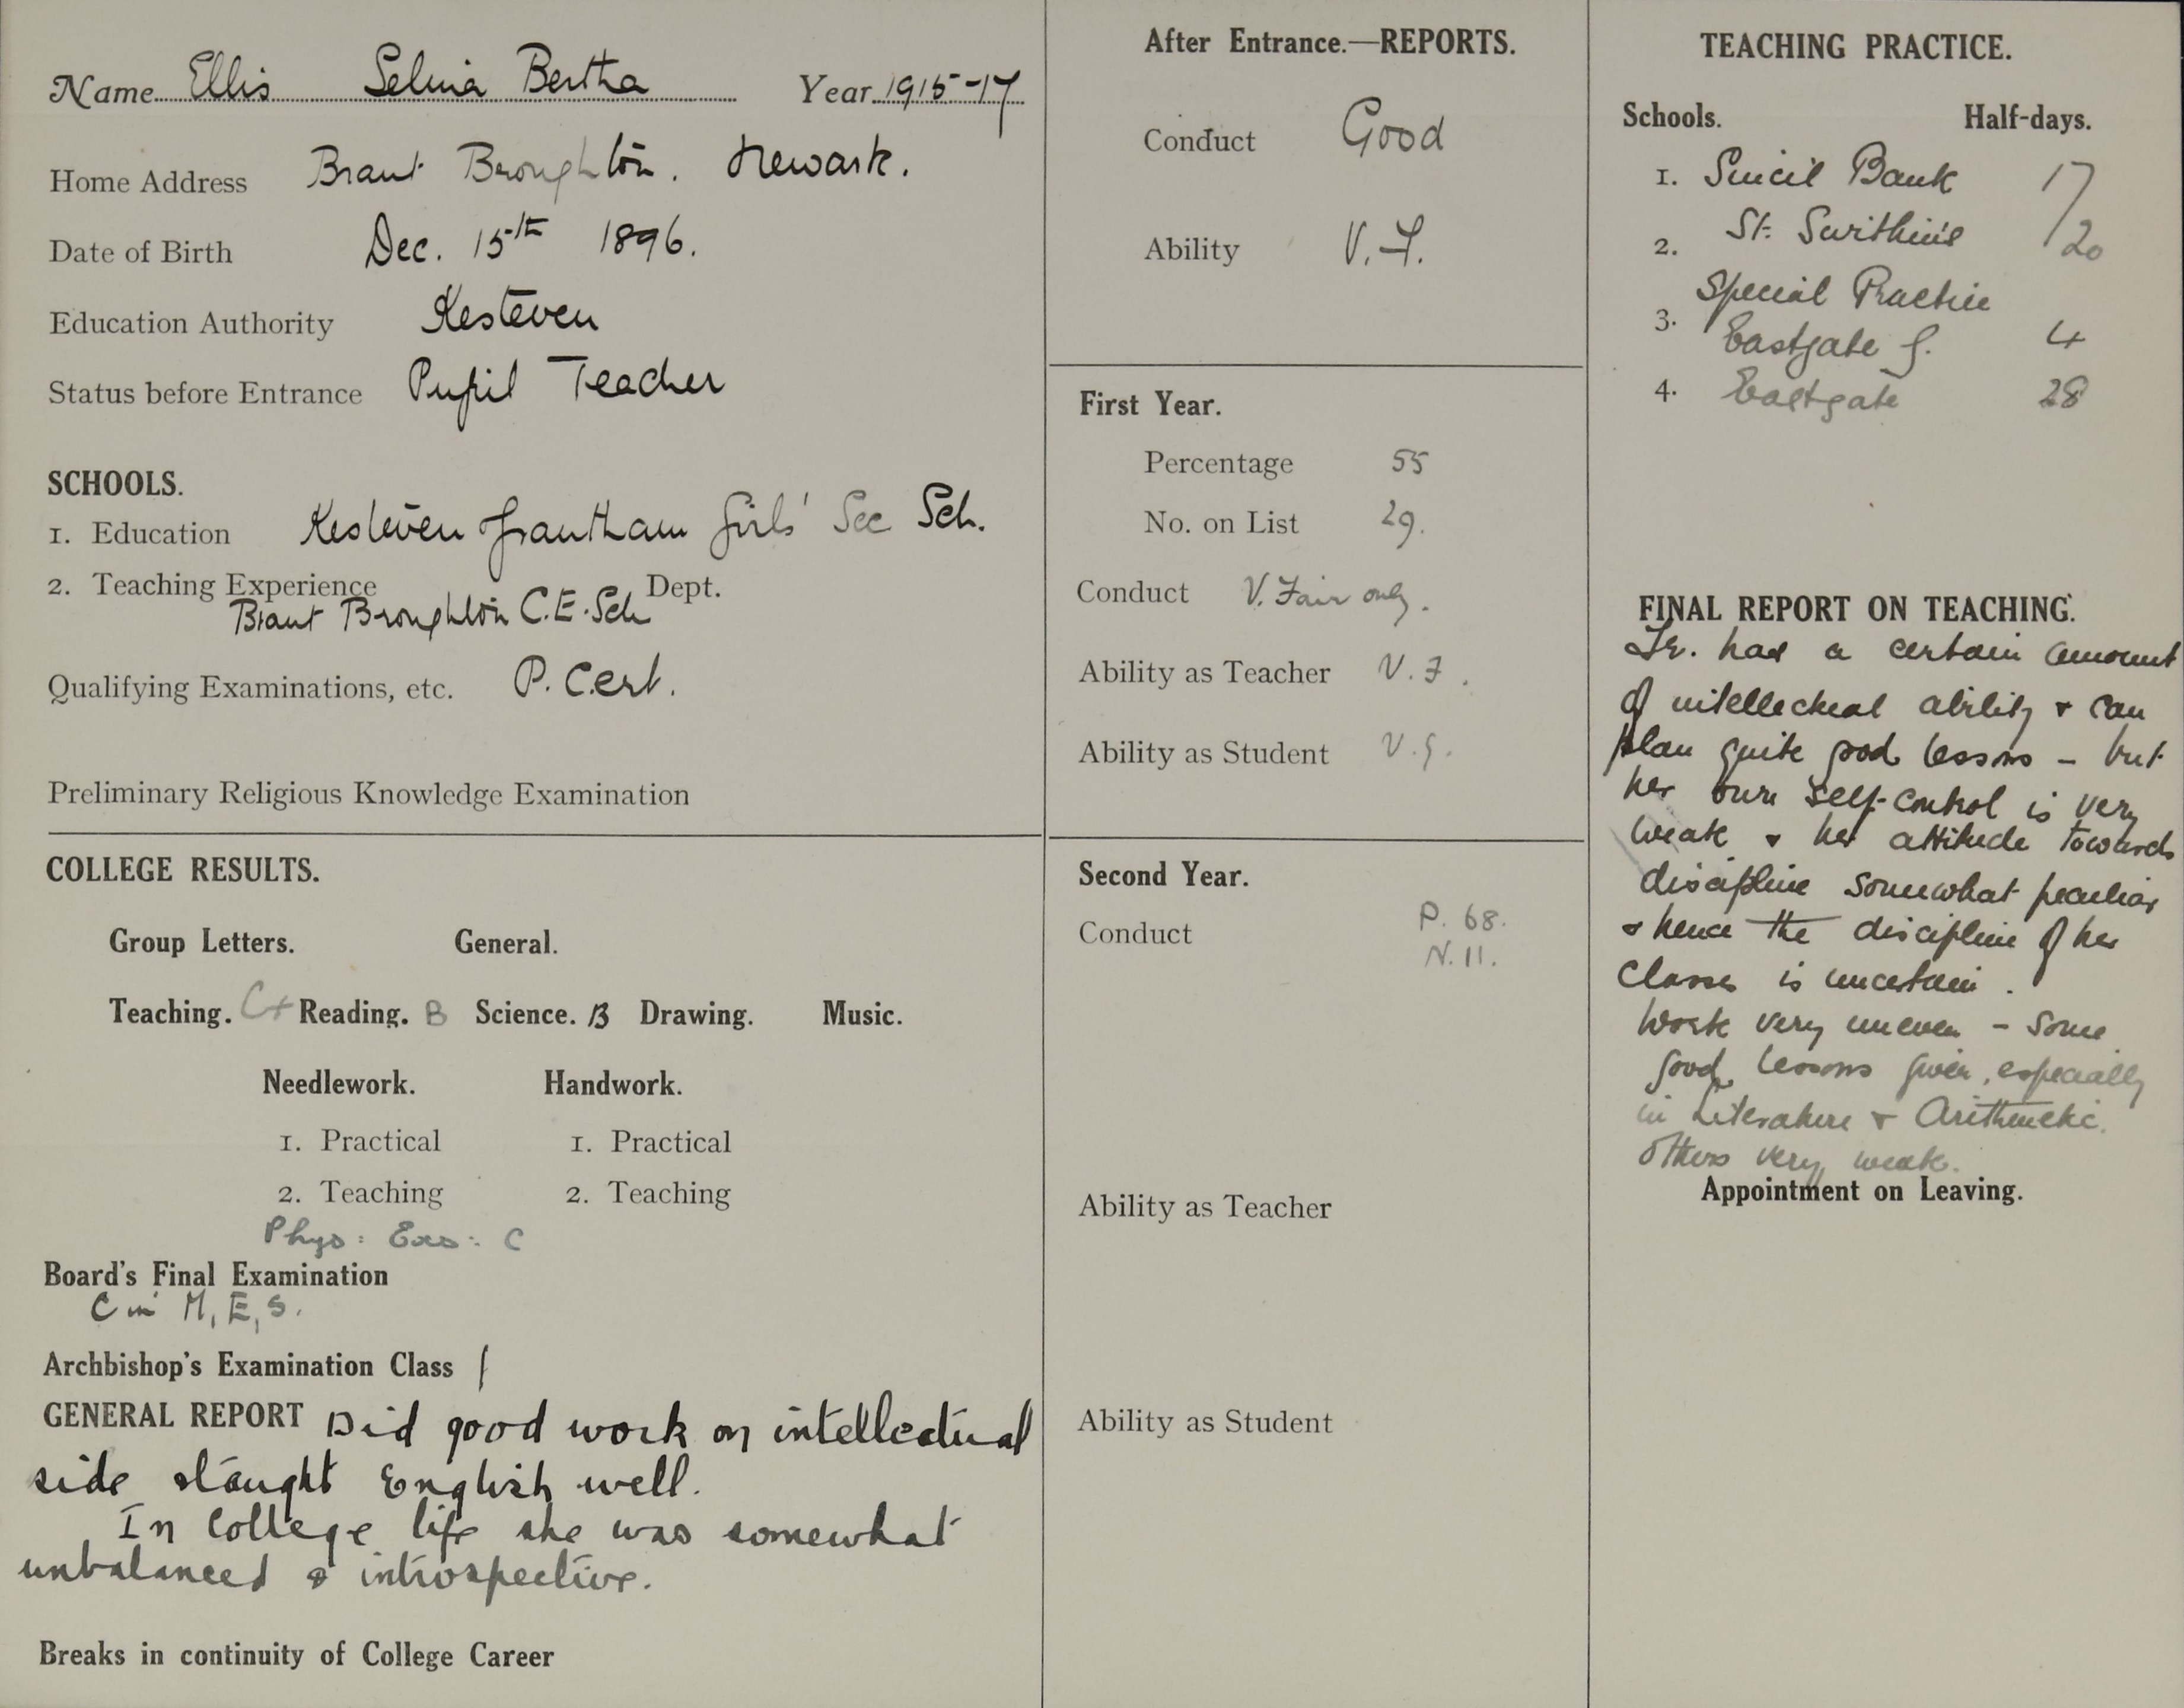 Name Ellis Selina Bertha Year 1915-17
Home Address Brant Broughton. Newark.
Date of Birth Dec. 15th 1896.
Education Authority Kesteven
Status before Entrance Pupil Teacher
SCHOOLS.
1. Education Kesteven & Grantham Girls' Sec Sch.
2. Teaching Experience Dept.
Brant Broughton C.E. Sch
Qualifying Examinations, etc. P. Cert.
Preliminary Religious Knowledge Examination
COLLEGE RESULTS.
Group Letters. General.
Teaching. C+ Reading. B Science. B Drawing. Music.
Needlework. Handwork.
1. Practical 1. Practical
2. Teaching 2. Teaching
Phys: Exs: C
Board's Final Examination
C in M, E, S.
Archbishop's Examination Class 1
GENERAL REPORT Did good work on intellectual
side & taught English well.
In College life she was somewhat
unbalanced & introspective.
Breaks in continuity of College Career
After Entrance.—REPORTS.
Conduct Good
Ability V.F.
First Year.
Percentage 55
No. on List 29.
Conduct V. Fair only.
Ability as Teacher V.F.
Ability as Student V.G.
Second Year.
Conduct P. 68.
N. 11.
Ability as Teacher
Ability as Student
TEACHING PRACTICE.
Schools. Half-days.
1. Sincil Bank 17
2. St. Swithin's /20
Special Practice
3. Eastgate G. 4
4. Eastgate 28
FINAL REPORT ON TEACHING.
has a certain amount
of intellectual ability & can
plan quite good lessons - but
her own self-control is very
weak & her attitude towards
discipline somewhat peculiar
& hence the discipline of her
classes is uncertain.
Work very uneven - some
good lessons given, especially
in Literature & Arithmetic.
Others very weak.
Appointment on Leaving.